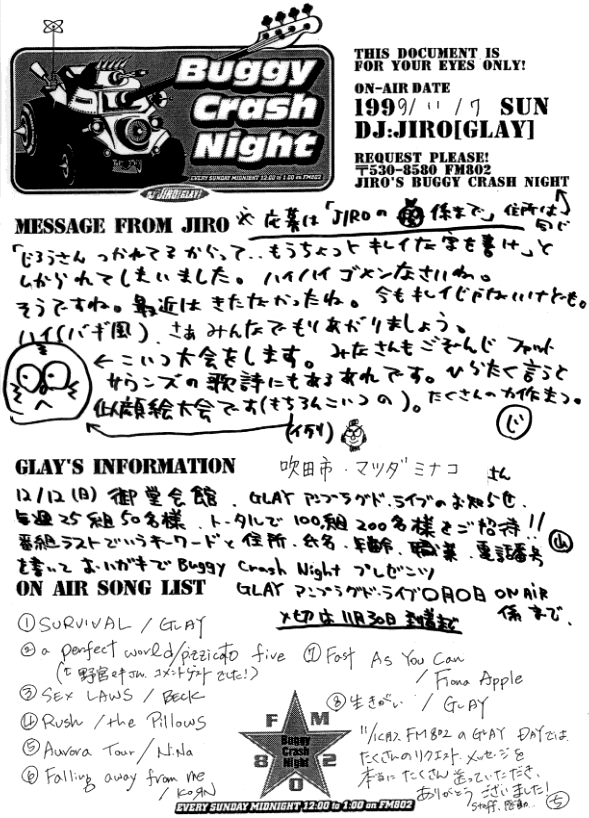 Buggy
Crash
Night
EVERY SUNDAY MIDNIGHT 12:00 to 1:00 on FM802
DJ:JIRO[GLAY]
THIS DOCUMENT IS
FOR YOUR EYES ONLY!
ON-AIR DATE
1999/11/7 SUN
DJ:JIRO[GLAY]
REQUEST PLEASE!
〒530-8580 FM802
JIRO'S BUGGY CRASH NIGHT
MESSAGE FROM JIRO
※応募は「JIROの 係まで」住所は同じ
「じろうさん つかれてるからって..もうちょっとキレイな字を書け」と
しかられてしまいました。ハイハイゴメンなさいね。
そうですね。最近はきたなかったね。今もキレイじゃないけども。
ハイ(バギ風)、さぁみんなでもりあがりましょう。
←こいつ大会をします。みなさんもごぞんじ ファット
サウンズの歌詩にもあるあれです。ひらたく言うと
似顔絵大会です(もちろんこいつの)。たくさんの力作まつ。
(イラリ)
じ
GLAY'S INFORMATION
吹田市・マツダミナコ さん
12/12(日)御堂会館、GLAYアンプラグド・ライブのお知らせ、
毎週25組50名様、トータルで100組200名様をご招待!!
番組ラストでいうキーワードと住所、氏名、年齢、職業、電話番号
を書いておハガキでBuggy Crash Night プレゼンツ
GLAY アンプラグド・ライブ〇月〇日 ON AIR
係まで、
〆切は11月30日到着まで
山
ON AIR SONG LIST
①SURVIVAL / GLAY
②a perfect world/pizzicato five
(↑野宮さん、コメントゲストでした!)
③SEX LAWS / BECK
④Rush / the Pillows
⑤Aurora Tour / NiNa
⑥Falling away from me
/ KoЯN
⑦Fast As You Can
/ Fiona Apple
⑧生きがい / GLAY
FM
802
Buggy
Crash
Night
EVERY SUNDAY MIDNIGHT 12:00 to 1:00 on FM802
FM802のGLAY DAYでは、
たくさんのリクエスト、メッセージを
本当にたくさん送っていただき、
ありがとうございました!